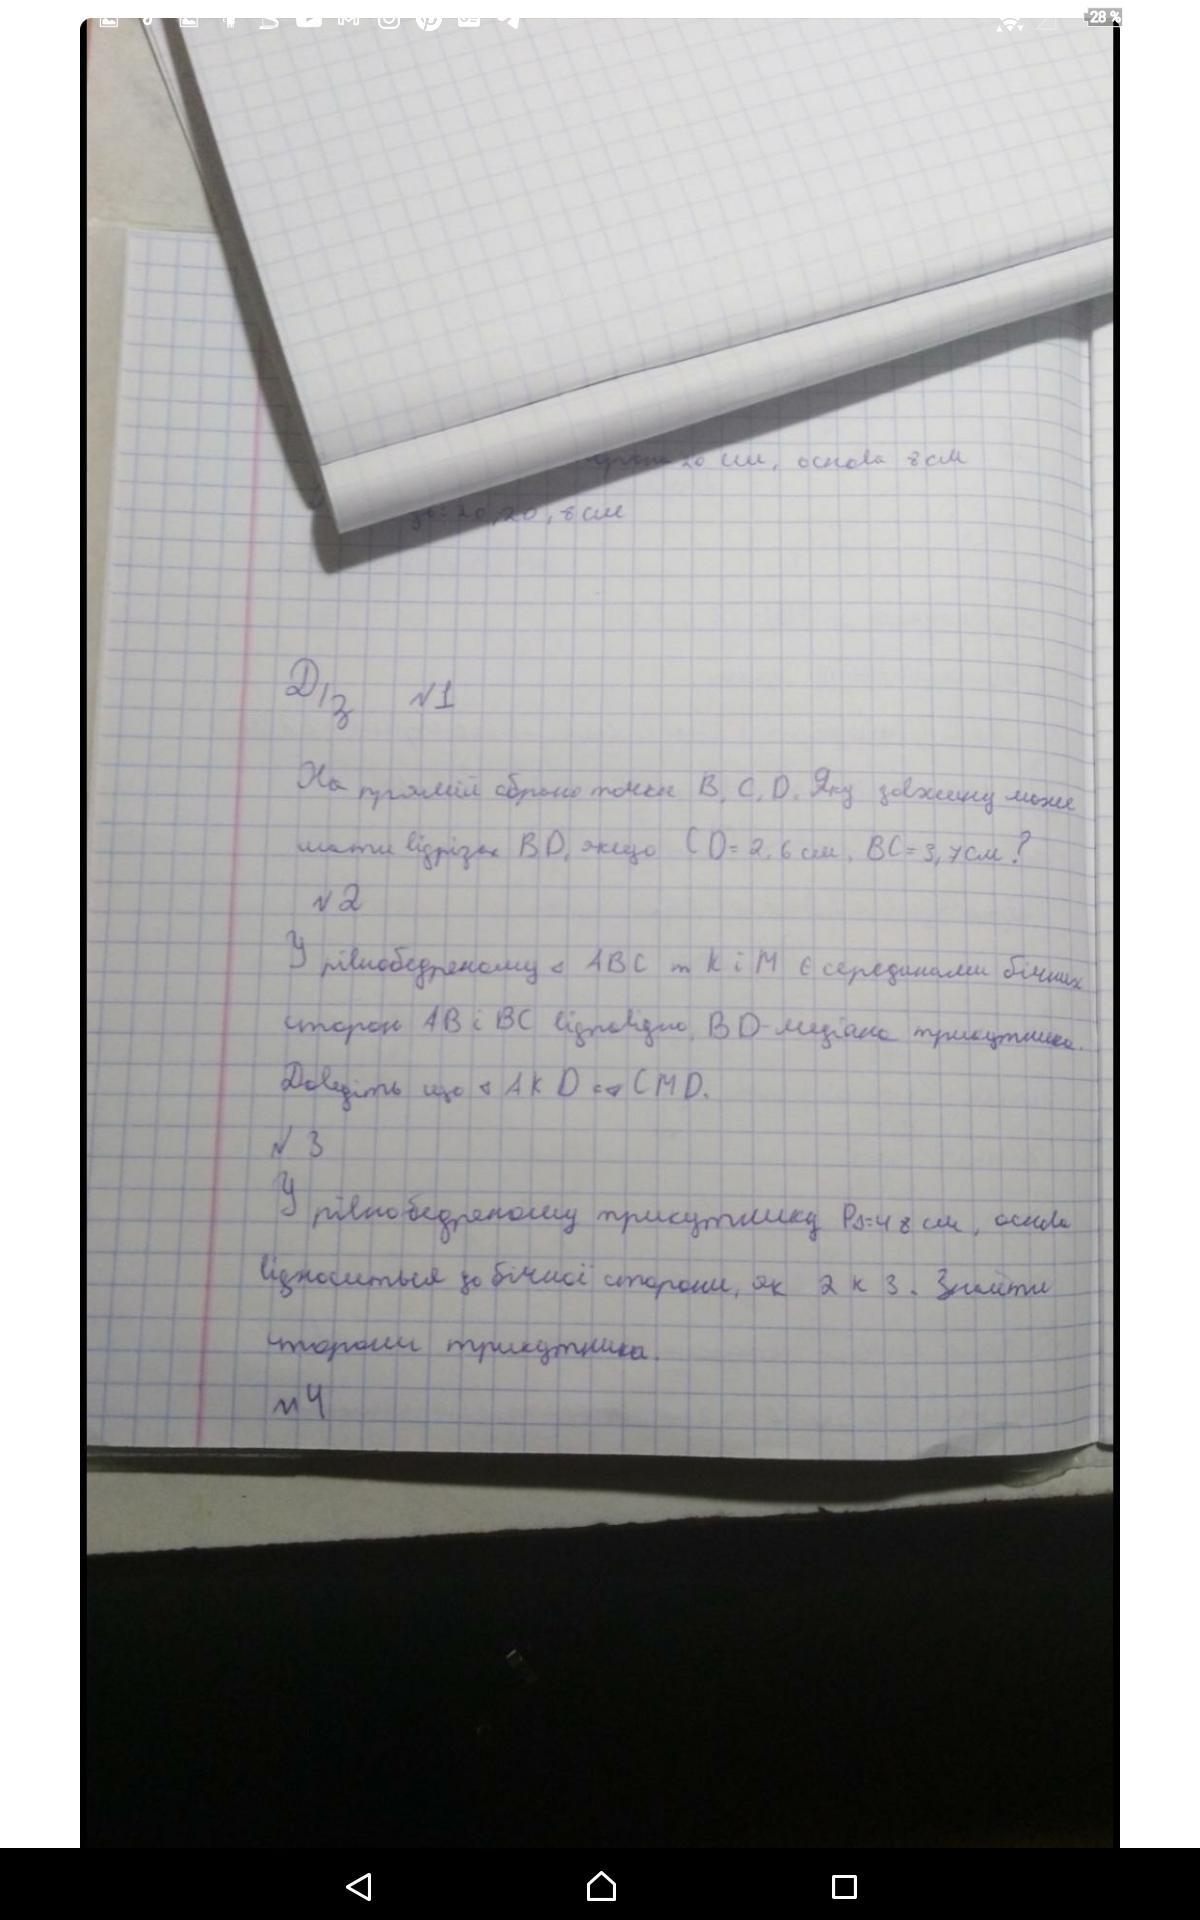 28 %
20 см, основа 8 см
20, 20, 8 см
Д/з №1
На прямій обрано точки B, C, D. Яку довжину може
мати відрізок BD, якщо CD = 2,6 см, BC = 3,7 см?
№2
У рівнобедреному △ ABC т K і M є серединами бічних
сторон AB і BC відповідно, BD - медіана трикутника.
Доведіть що △ AKD = △ CMD.
№3
У рівнобедреному трикутнику P△=48 см, основа
відноситься до бічної сторони, як 2 к 3. Знайти
сторони трикутника.
№4